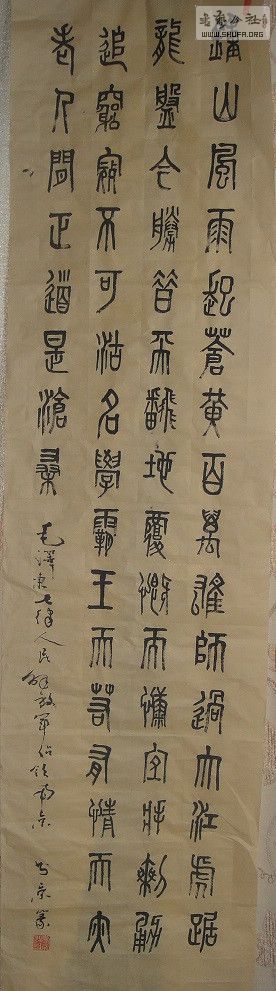 鍾山風雨起蒼黃百萬雄師過大江虎踞
龍盤今勝昔天翻地覆慨而慷宜將剩勇
追窮寇不可沽名學霸王天若有情天亦
老人間正道是滄桑
毛澤東七律人民解放軍佔領南京
WWW.SHUFA.ORG